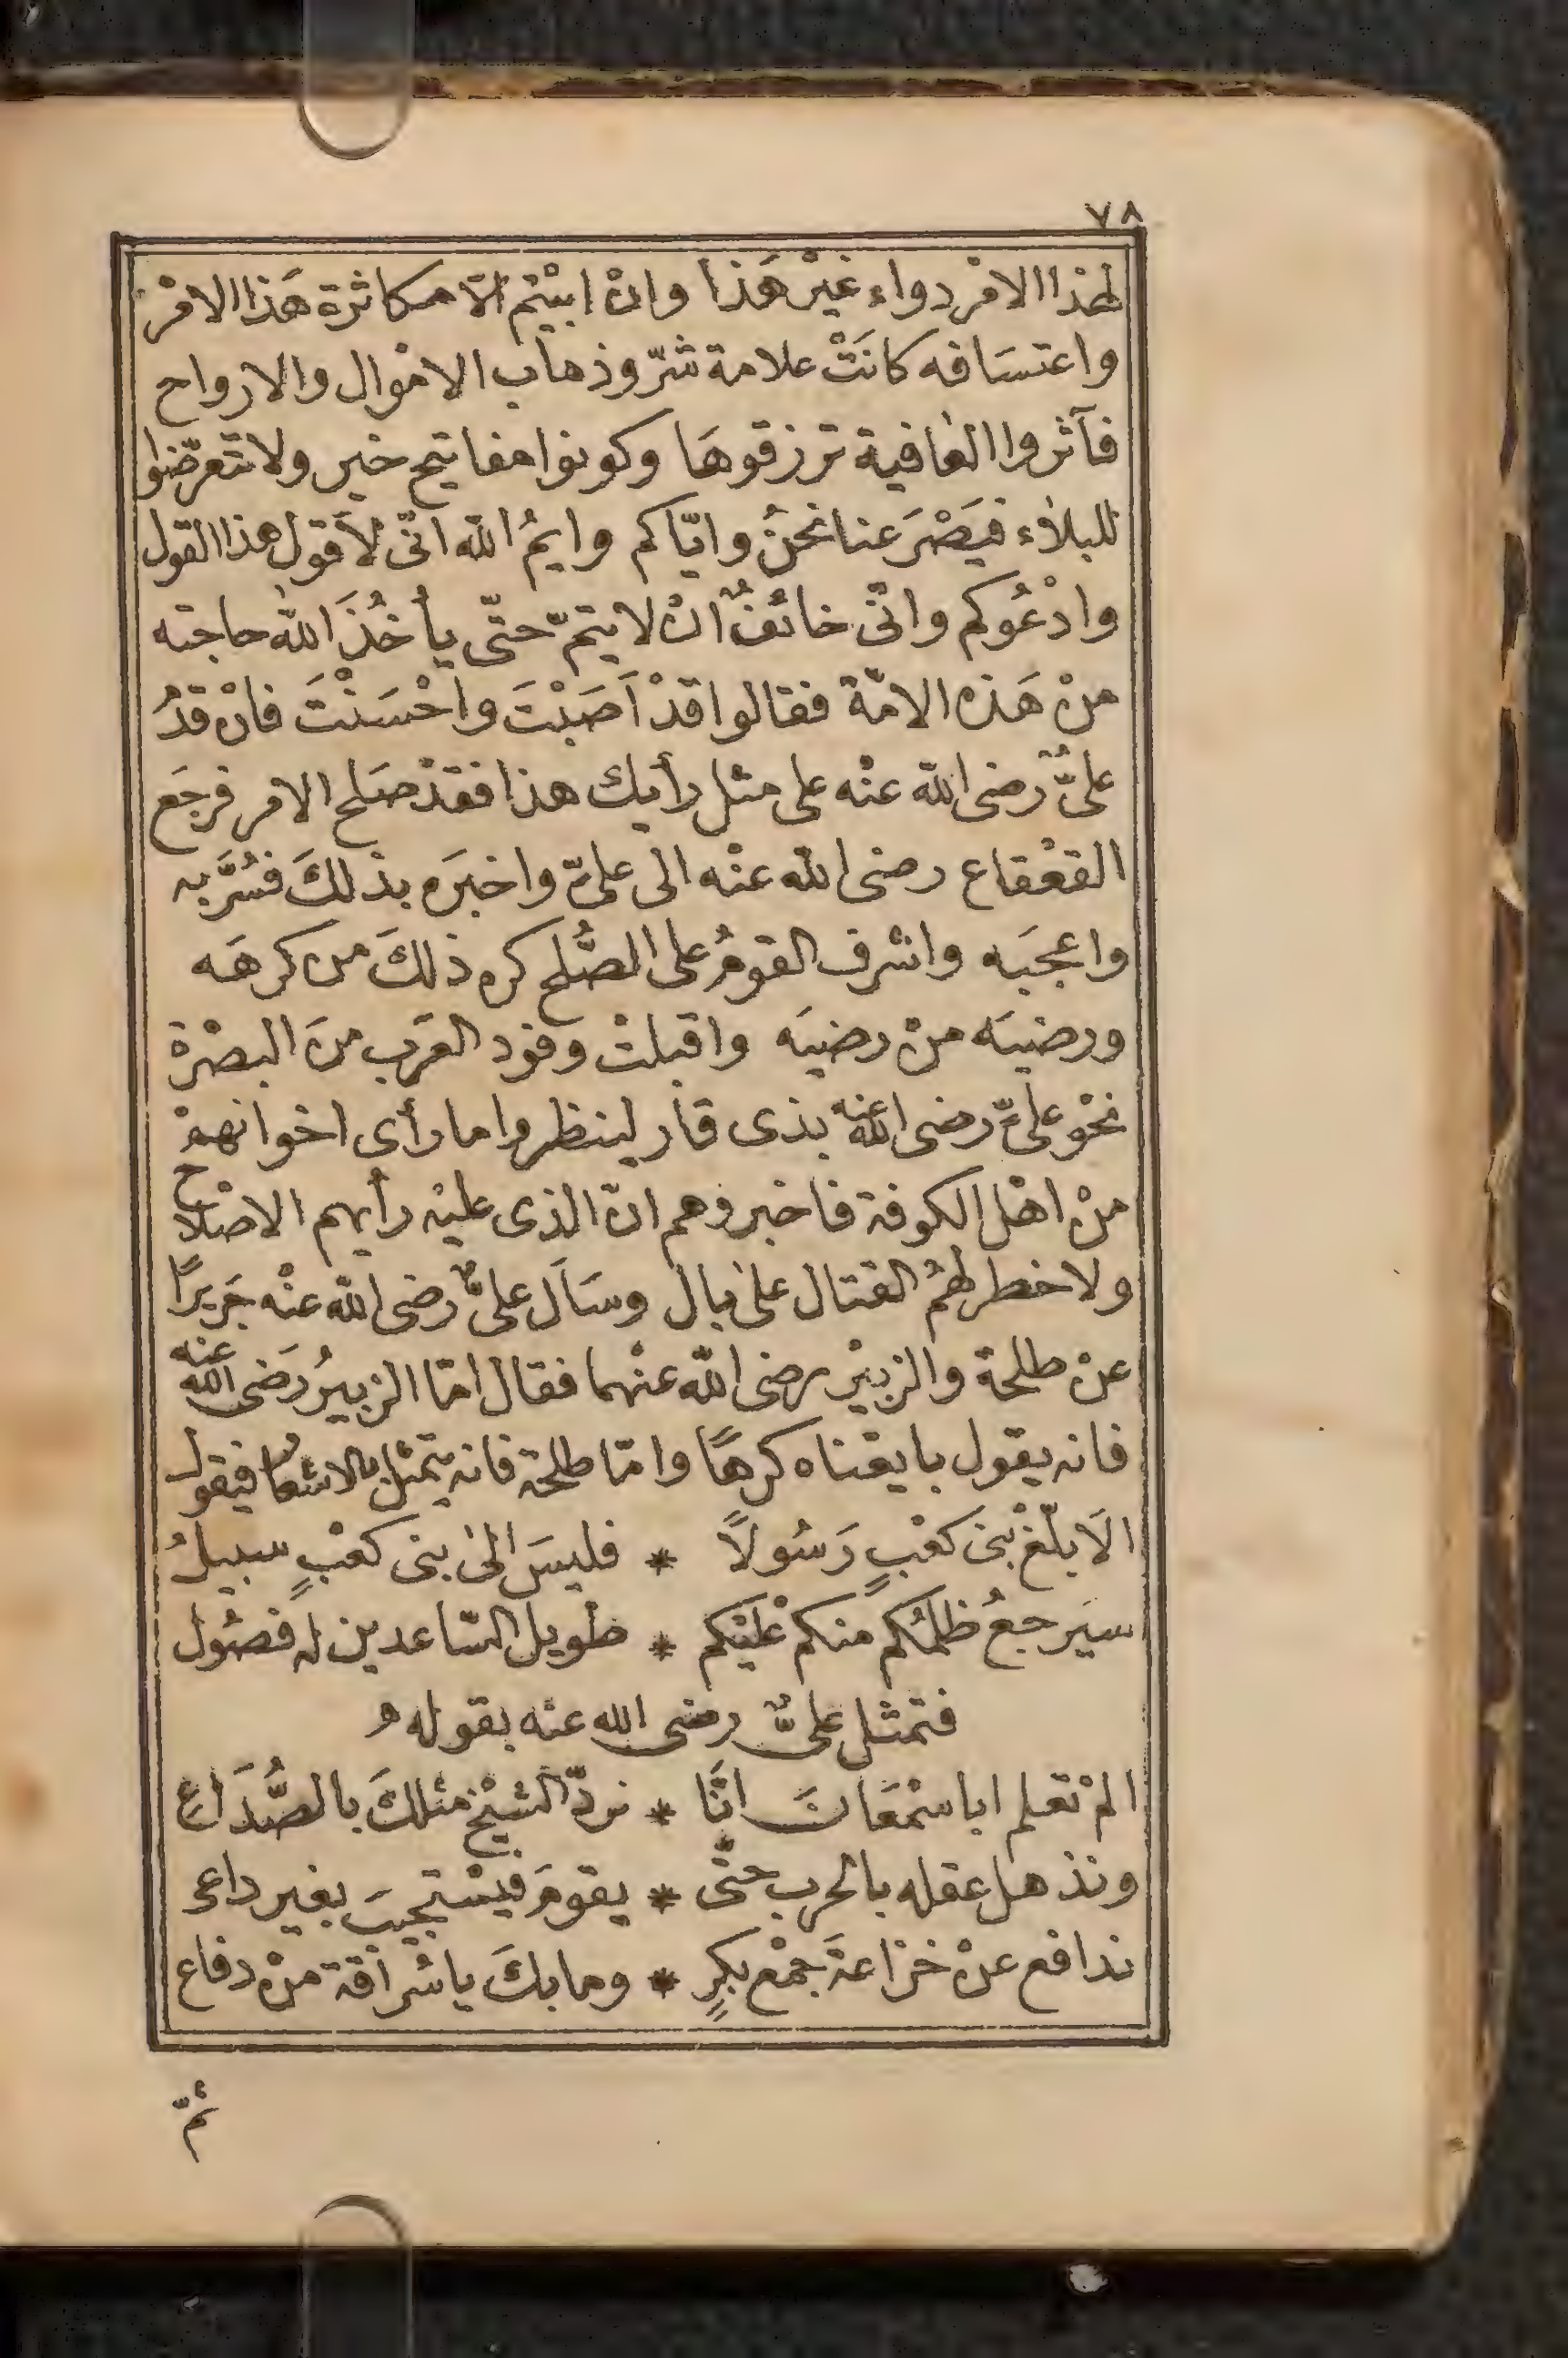 ٧٨
لهذا الامْر دواء غيْر هَذا وانْ ابيْتم الّا مكاثرة هَذا الامْر
واعتسَافه كانَتْ علامة شرّ وذهاب الامْوال والارواح
فآثروا العٰافية ترزقوهَا وكونوا مفاتيح خير ولا تتعرّضوا
للبلاٰء فيَصْرَعنا نحنُ وايّاكم وايمُ اللّه انّى لَاقول هذا القول
وادْعُوكم وانّى خائفٌ انْ لا يتمّ حتّى يأخُذَ اللّٰه حاجته
منْ هَذه الامّة فقالوا قدْ اَصَبْتَ واَحْسَنْتَ فانْ قدُ
علىٌّ رضى اللّه عنْه على مثل رأيك هذا فقدْ صَلح الامر فرجَع
القعْقاع رضى اللّه عنْه الى علىّ واخبَره بذلكَ فسُرَّ به
واعجبَه واشرف القومُ على الصُّلح كره ذلكَ من كرهَه
ورضيَه منْ رضيَه واقبلتْ وفود العَرب منَ البصْرة
نحْو علىّ رضى اللّه عنه بذى قار لينظروا ما رأى اخوانهمْ
منْ اهْل الكوفة فاخبروهم انّ الذى عليْه رأيهم الاصْلاح
ولا خطر لهُم القتال علىٰ بال وسَاَل علىٌّ رضى اللّه عنْه جَريرًا
عنْ طلحة والزبيْر رضى اللّه عنْهما فقال امّا الزبيرُ رَضى اللّه عنه
فانه يقول بايعْناه كرهًا وامّا طلحة فانه يتمثّل بالاشعار فيقول
الَا بلّغْ بنى كعْبٍ رَسُولًا * فليسَ الىٰ بنى كعْبٍ سبيلُ
سيَرجعُ ظلمُكم منكم عْليَكم * طْويل السّاعدين له فضُول
فتمثل علىٌّ رضى الله عنه بقوله
المْ تعلم ابا سمْعَانَ انَّا * نردّ الشيْخ مثلكَ بالصُّدَاعِ
ونذهل عقله بالحرب حتّى * يقومَ فيسْتجيبَ بغير داعى
ندافع عنْ خزاعةَ جمْع بكرٍ * وما بكَ يا سُراقة منْ دفاع
ثمّ